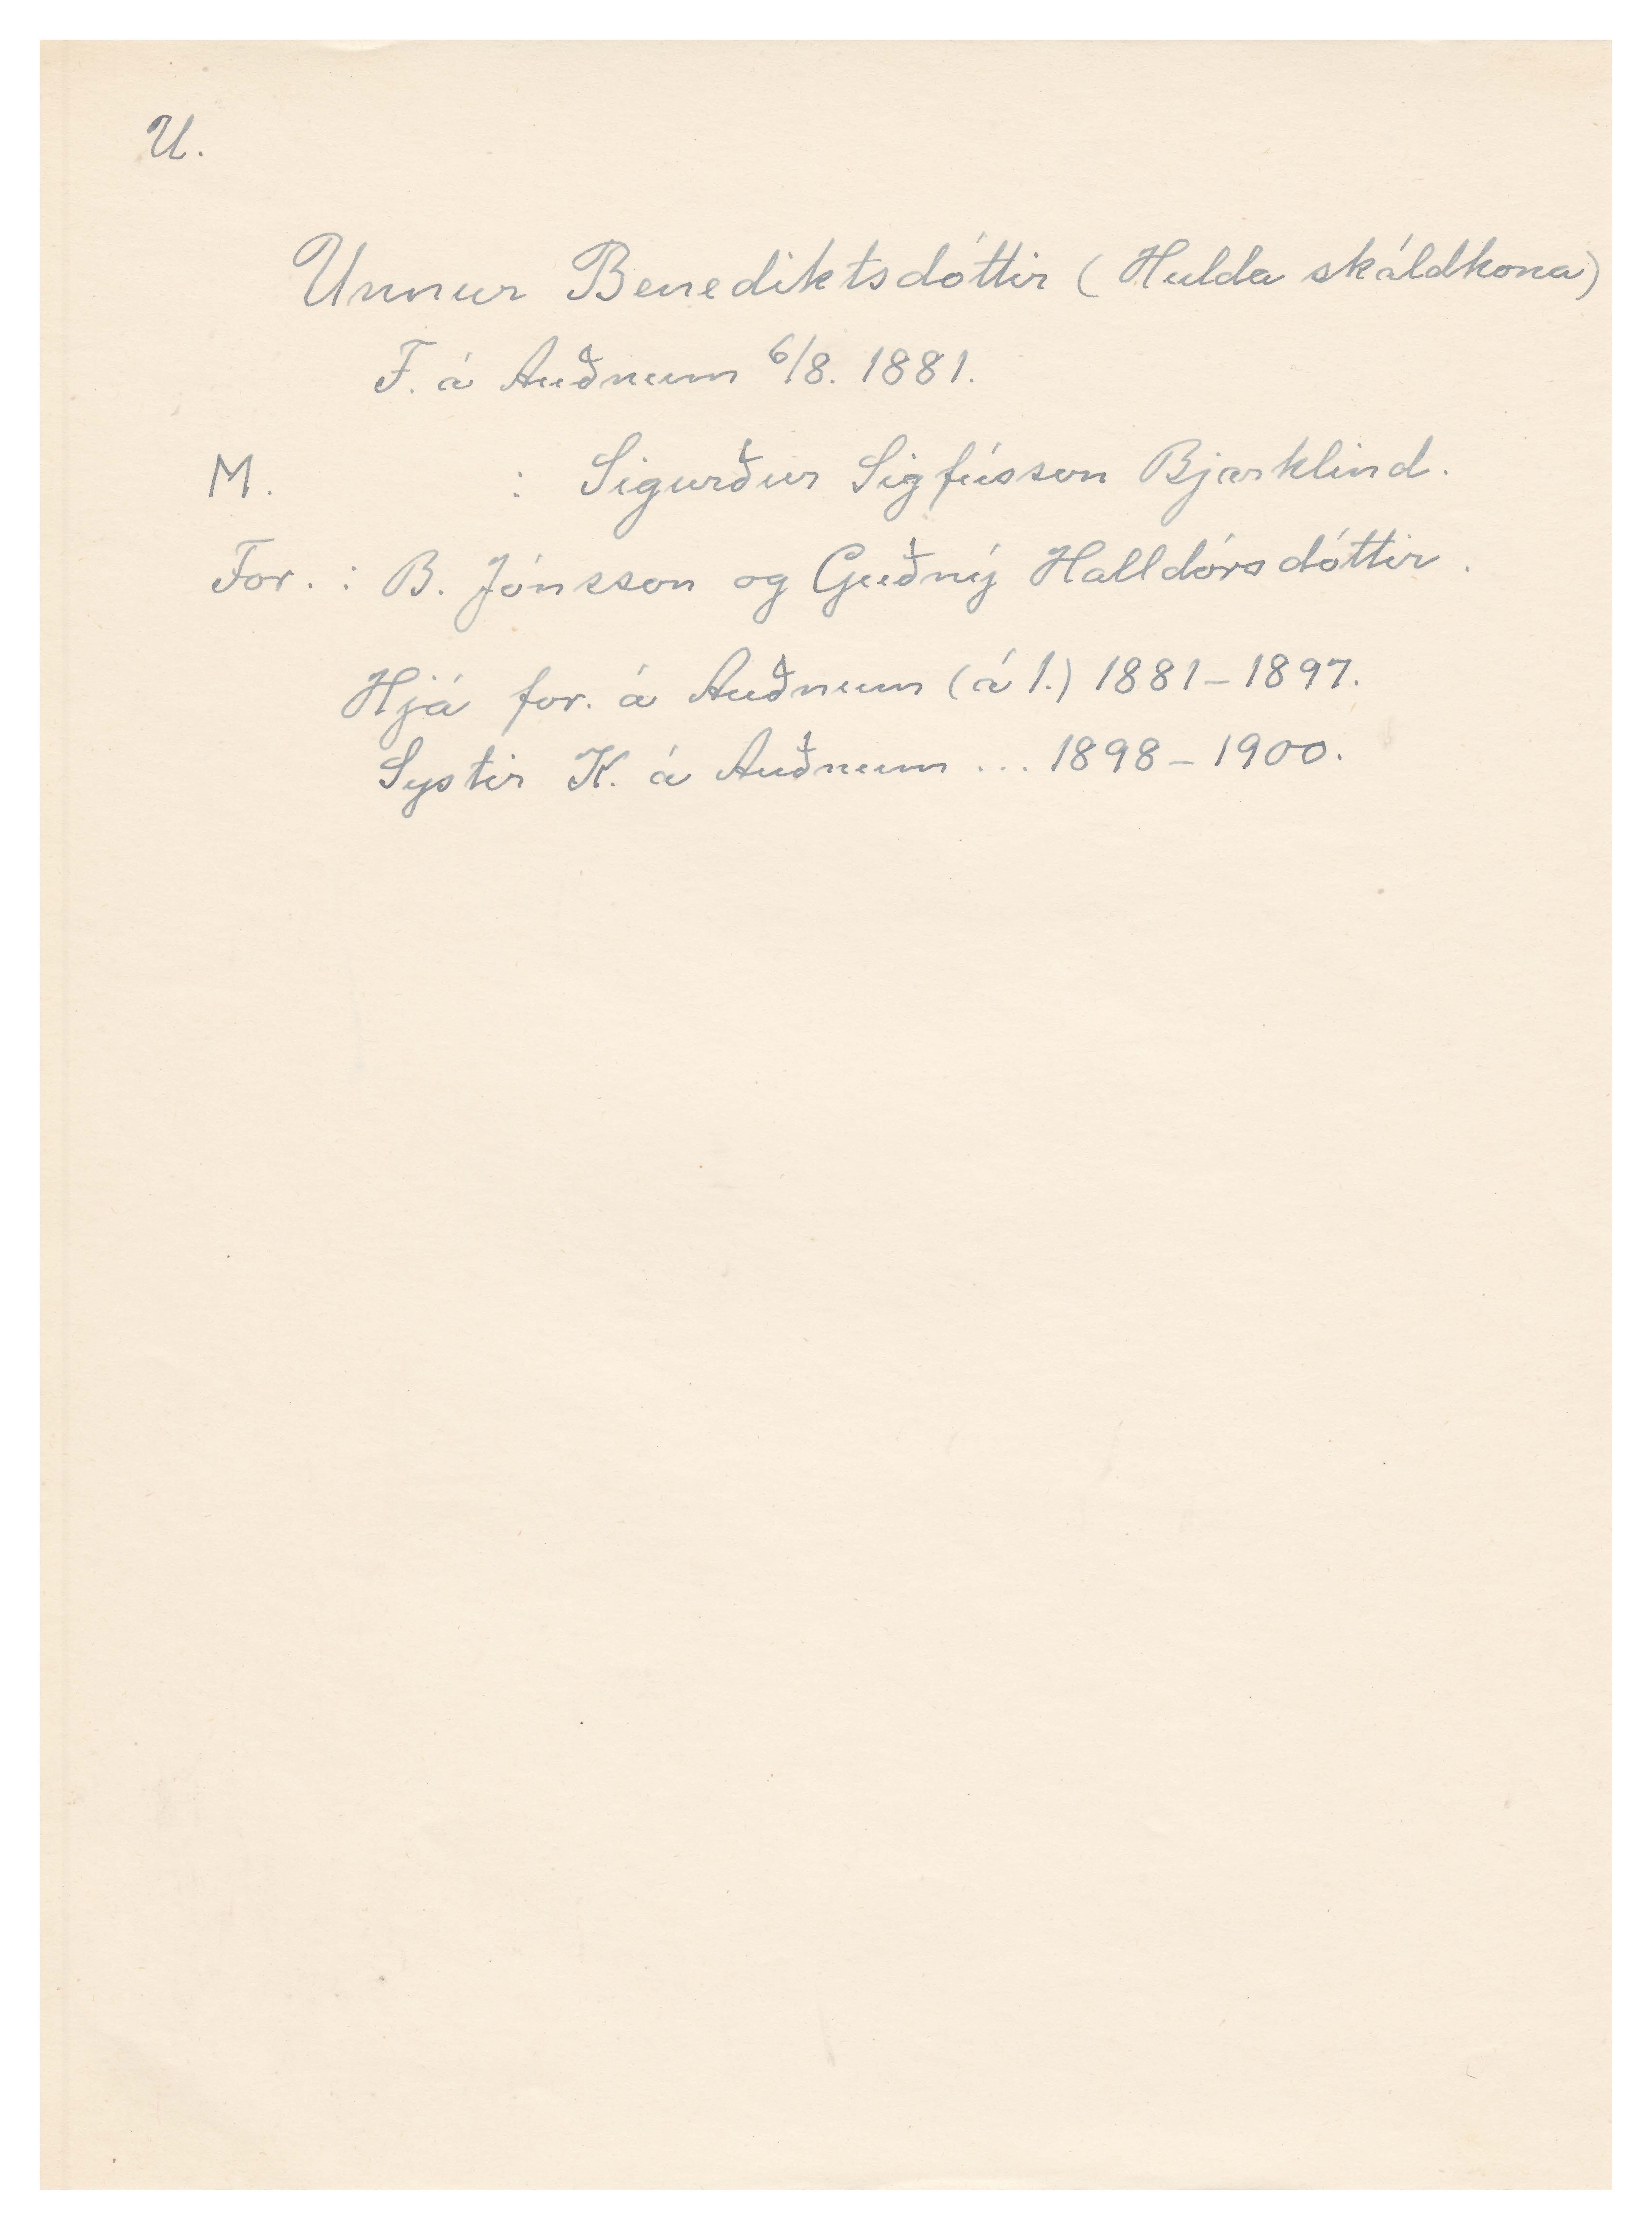 U.
Unnur Benediktsdóttir (Hulda skáldkona)
F. á Auðnum 6/8. 1881.
M. : Sigurður Sigfússon Bjarklind.
For. : B. Jónsson og Guðný Halldórsdóttir.
Hjá for. á Auðnum (á 1.) 1881-1897.
Systir K. á Auðnum ... 1898-1900.